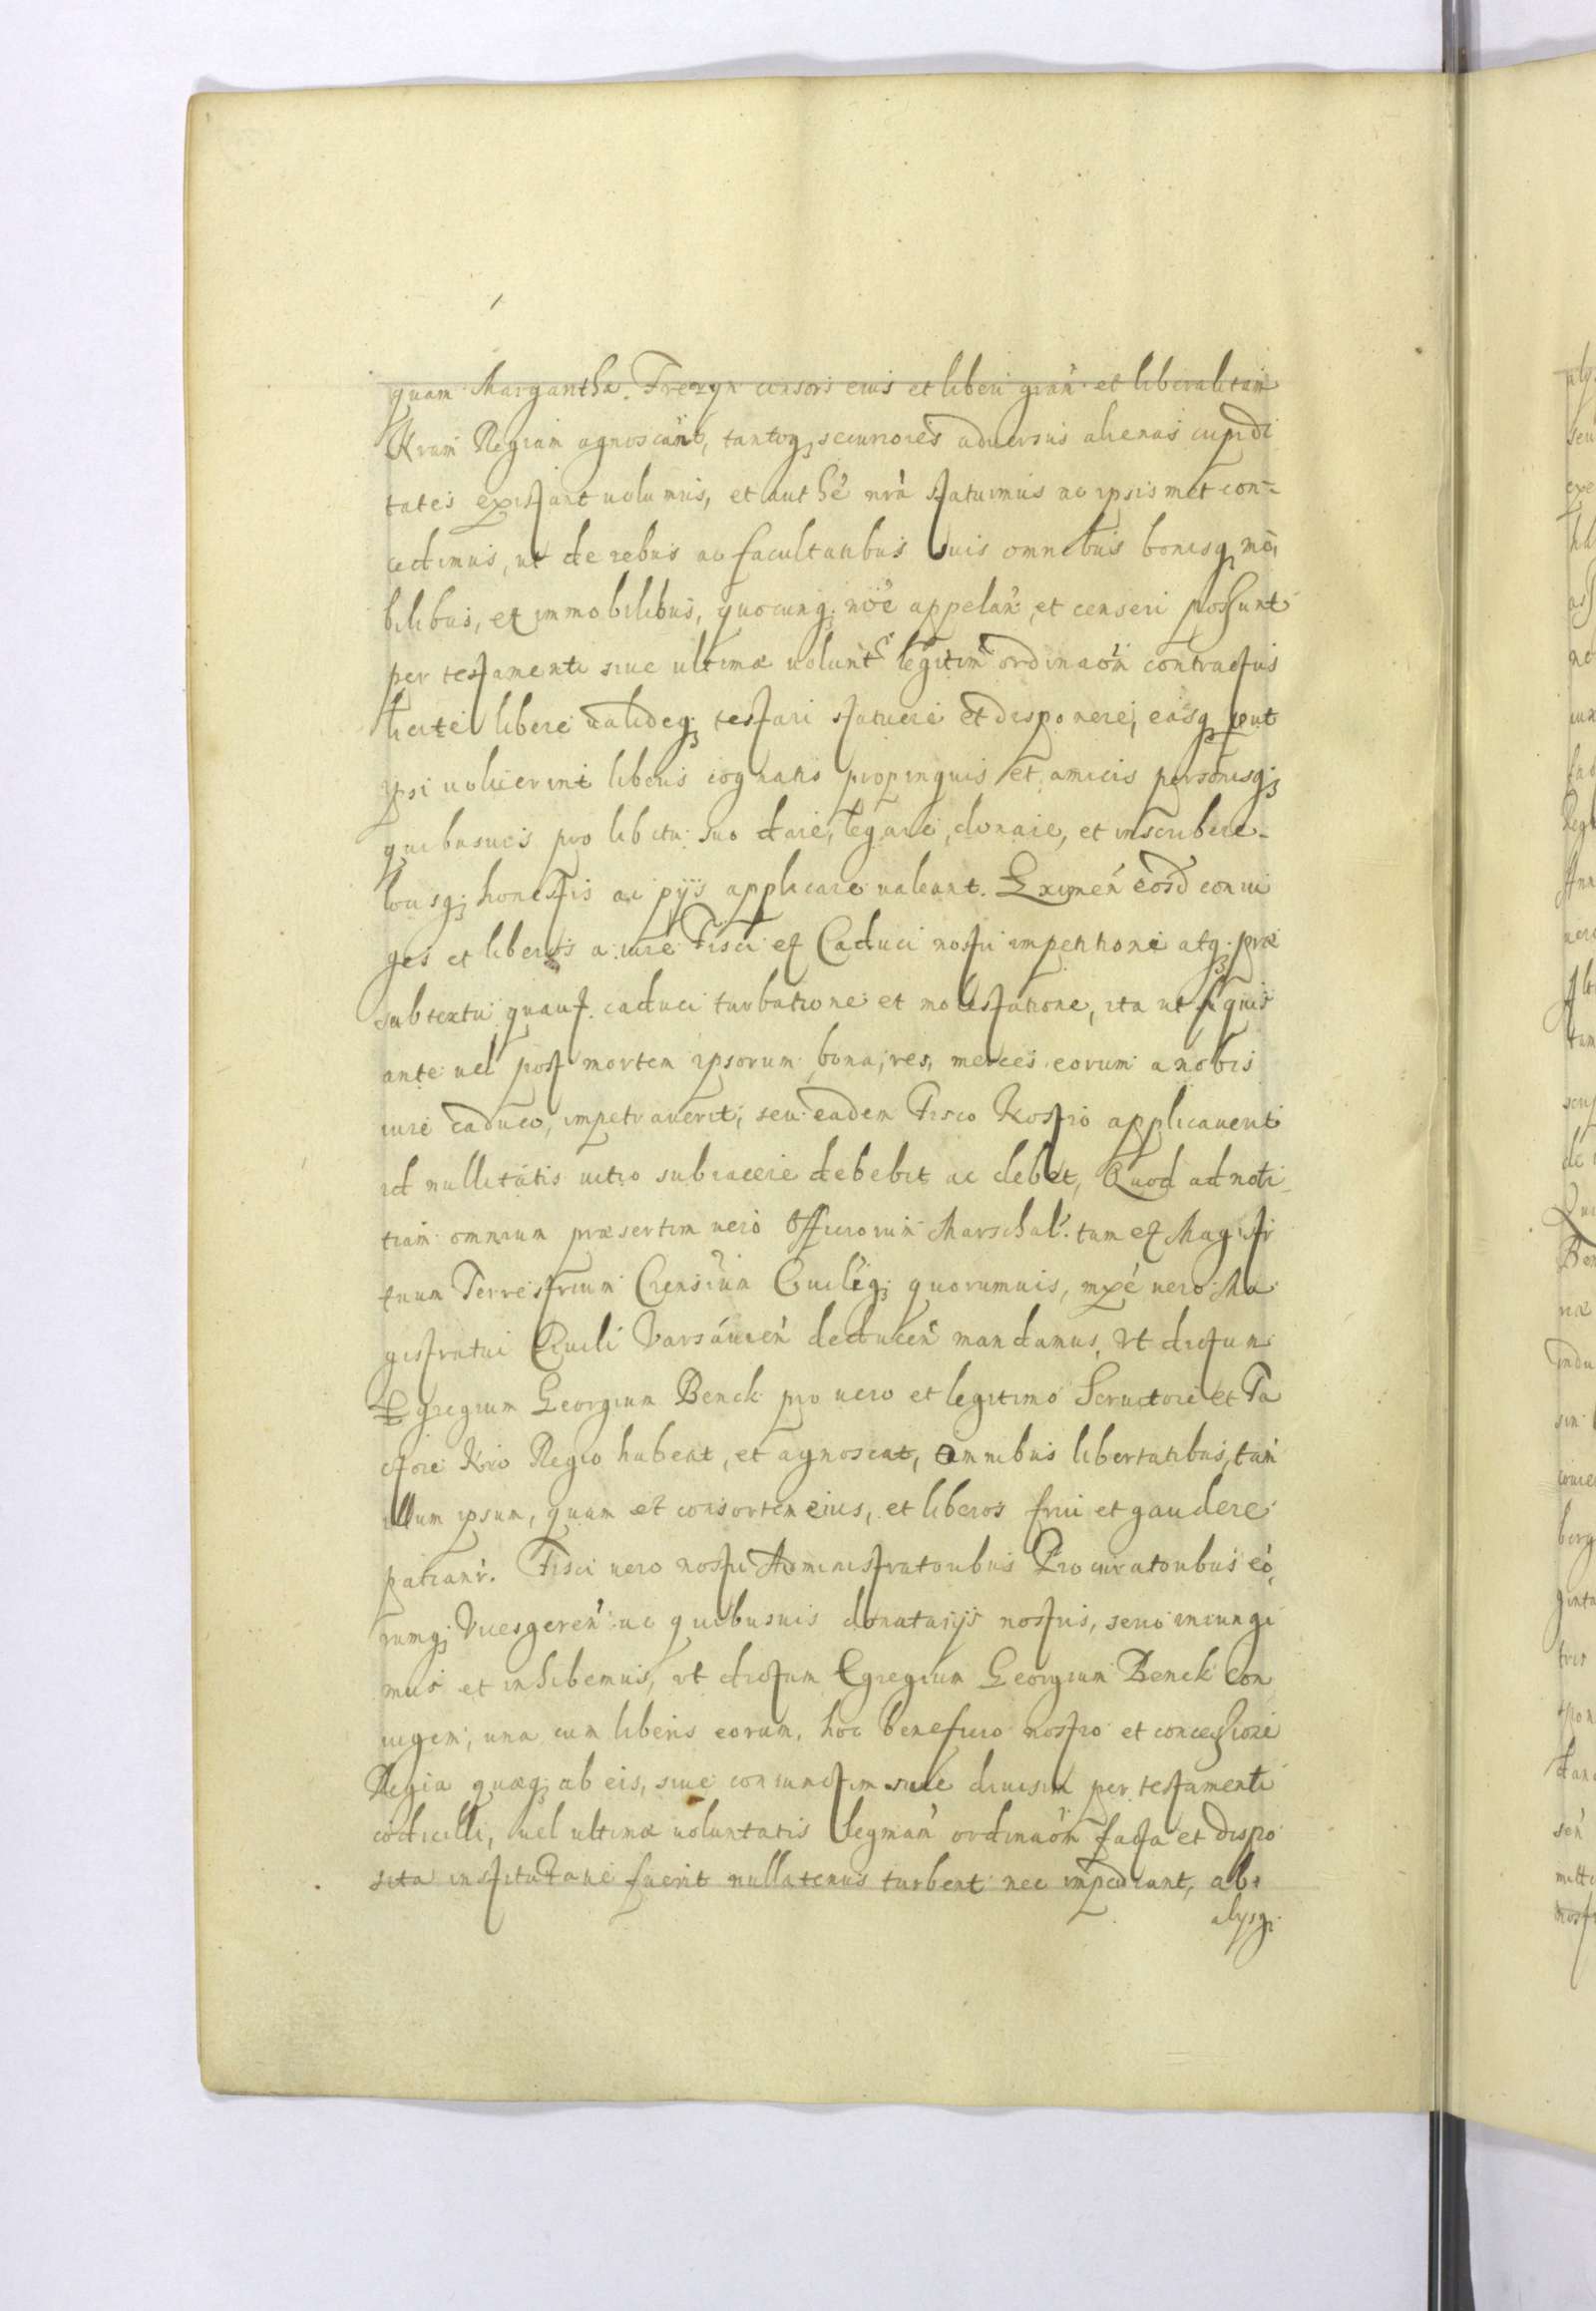 quam Margaritha Frezyn consors eius et liberi gran̄ et liberalitam
Nram̄ Regiam agnoscant, tantoq; securiores aduersus alienas cupidi
tates existant uolumus, et auth̄e nr̄a statuimus ac ipsismet con-
cedimus, ut de rebus ac facultatibus suis omnibus bonisq; mo,
bilibus, et immobilibus, quocunq; noe̅ appelan̄, et censeri possunt
per testamenti siue ultimæ uolunt̄ legitim̄ ordinaōm contractus
licite libere ualideq; testari statuere et disponere, easq; prout
ipsi uoluerint liberis cognatis propinquis et amicis personisq;
quibusuis pro libitu suo dare, legare, donare, et inscribere
locisq; honestis ac pijs applicare ualeant. Eximen̄ eosd̄ coniu
ges et liberos a iure Fisci et Caduci nostri impetitione atq; præ
subtextu quauis caduci turbatione et molestatione, ita ut si quis
ante uel post mortem ipsorum bona, res, merces eorum a nobis
iure caduco, impetrauerit, seu eadem Fisco Nostro applicauerit
id nullitatis uitio subiacere debebit ac debet, Quod ad noti
tiam omnium præsertim uero Officiorum Marschal: tum et Magistr
tuum Terrestrium Crensium Ciuileq; quorumuis, mxe̅ uero Ma
gistratui Ciuili Varsauien̄ deducen̄ mandamus, Vt dictum
Egregium Georgium Benck pro uero et legitimo Seruitore et Fa
ctore Nr̄o Regio habeat, et agnoscat, omnibus libertatibus, tam̄
illum ipsum, quam et consortem eius, et liberos frui et gaudere
patianr̄. Fisci uero nostri Administratoribus Procuratoribus eo,
rumq; Vicesgeren̄ ac quibusuis donatarijs nostris, serio iniungi
mus et inhibemus, vt dictum Egregium Georgium Benck con
iugem, una cum liberis eorum, hoc beneficio nostro et concessione
Regia quæq; ab eis, siue coniunctim siue diuisim per testamenti
codicilli, uel ultimæ uoluntatis legitmam̄ ordinaōm facta et dispo
sita institutaue fuerit nullatenus turbent nec impediant, ab
alijsq;